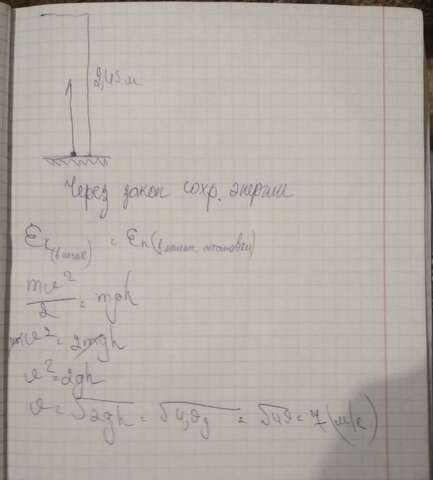 2,45 м
Через закон сохр. энергии
Eк (в начале) = Eп (в момент остановки)
mv²/2 = mgh
mv² = 2mgh
v² = 2gh
v = √2gh = √4,9g = √49 = 7 (м/с)